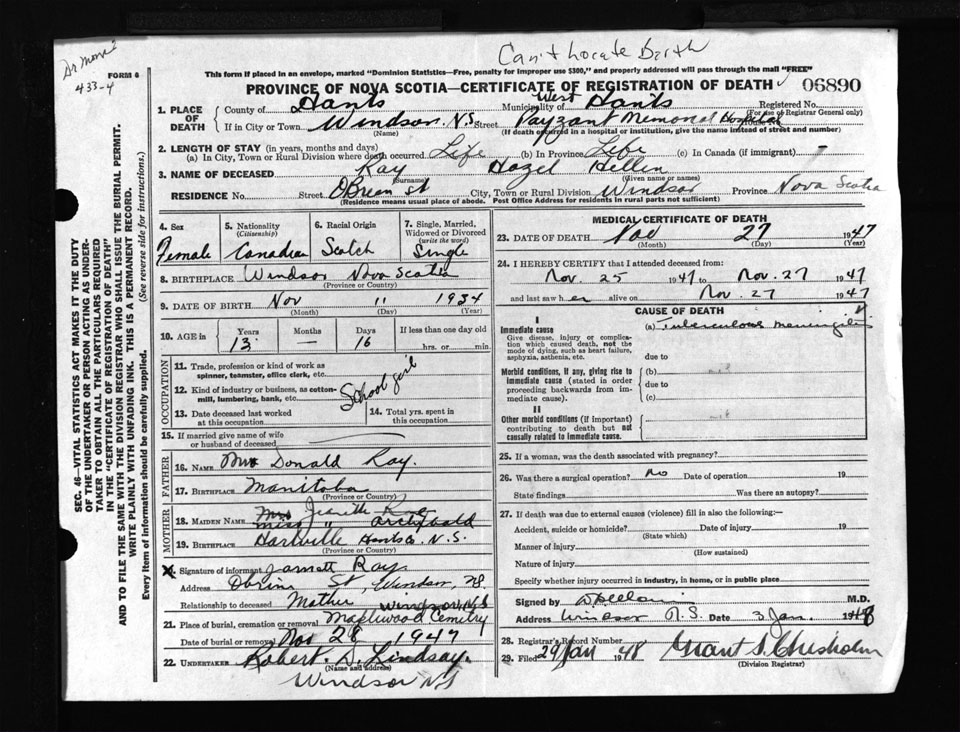 Can't Locate Birth
433-4
FORM 6
This form if placed in an envelope, marked "Dominion Statistics—Free, penalty for improper use $300," and properly addressed will pass through the mail "FREE"
PROVINCE OF NOVA SCOTIA—CERTIFICATE OF REGISTRATION OF DEATH 06890
1. PLACE OF DEATH
County of Hants Municipality of West Hants Registered No.
(For use of Registrar General only)
If in City or Town Windsor. N.S. Street Payzant Memorial Hospital
(Name) (If death occurred in a hospital or institution, give the name instead of street and number)
2. LENGTH OF STAY (in years, months and days)
(a) In City, Town or Rural Division where death occurred Life (b) In Province Life (c) In Canada (if immigrant) —
3. NAME OF DECEASED Ray Hazel Hellen
(Surname) (Given name or names)
RESIDENCE No. Street OBrien St City, Town or Rural Division Windsor Province Nova Scotia
(Residence means usual place of abode. Post Office Address for residents in rural parts not sufficient)
4. Sex Female
5. Nationality (Citizenship) Canadian
6. Racial Origin Scotch
7. Single, Married, Widowed or Divorced (write the word) Single
8. BIRTHPLACE Windsor Nova Scotia
(Province or Country)
9. DATE OF BIRTH Nov 11 1934
(Month) (Day) (Year)
10. AGE in Years 13 Months — Days 16 If less than one day old hrs. or min.
OCCUPATION
11. Trade, profession or kind of work as spinner, teamster, office clerk, etc.
12. Kind of industry or business, as cotton-mill, lumbering, bank, etc.
School girl
13. Date deceased last worked at this occupation
14. Total yrs. spent in this occupation
15. If married give name of wife or husband of deceased
FATHER
16. NAME Donald Ray.
17. BIRTHPLACE Manitoba
(Province or Country)
MOTHER
18. MAIDEN NAME Mrs Ray
Miss " Archibald
19. BIRTHPLACE Hants Co. N.S.
(Province or Country)
Signature of informant Ray
Address St, Windsor, NS
Relationship to deceased Mother
Windsor, NS
21. Place of burial, cremation or removal Maplewood Cemetry
Date of burial or removal Nov 28 1947
22. UNDERTAKER Robert. D. Lindsay.
(Name and address)
Windsor NS
MEDICAL CERTIFICATE OF DEATH
23. DATE OF DEATH Nov 27 1947
(Month) (Day) (Year)
24. I HEREBY CERTIFY that I attended deceased from:
Nov. 25 1947 to Nov. 27 1947
and last saw h er alive on Nov. 27 1947
CAUSE OF DEATH
I
Immediate cause (a) Tuberculous meningitis
Give disease, injury or complication which caused death, not the mode of dying, such as heart failure, asphyxia, asthenia, etc.
due to
Morbid conditions, if any, giving rise to immediate cause (stated in order proceeding backwards from immediate cause).
(b)
due to
(c)
II
Other morbid conditions (if important) contributing to death but not causally related to immediate cause.
25. If a woman, was the death associated with pregnancy?
26. Was there a surgical operation? no Date of operation 19
State findings Was there an autopsy?
27. If death was due to external causes (violence) fill in also the following:—
Accident, suicide or homicide? Date of injury 19
(State which)
Manner of injury
(How sustained)
Nature of injury
Specify whether injury occurred in industry, in home, or in public place
Signed by M.D.
Address Windsor N.S. Date 3 Jan. 1948
28. Registrar's Record Number
29. Filed 29 Jan 1948 Grant S. Chisholm
(Division Registrar)
SEC. 46—VITAL STATISTICS ACT MAKES IT THE DUTY
OF THE UNDERTAKER OR PERSON ACTING AS UNDER-
TAKER TO OBTAIN ALL THE PARTICULARS REQUIRED
IN THE "CERTIFICATE OF REGISTRATION OF DEATH"
AND TO FILE THE SAME WITH THE DIVISION REGISTRAR WHO SHALL ISSUE THE BURIAL PERMIT.
WRITE PLAINLY WITH UNFADING INK. THIS IS A PERMANENT RECORD.
Every item of information should be carefully supplied. (See reverse side for instructions.)